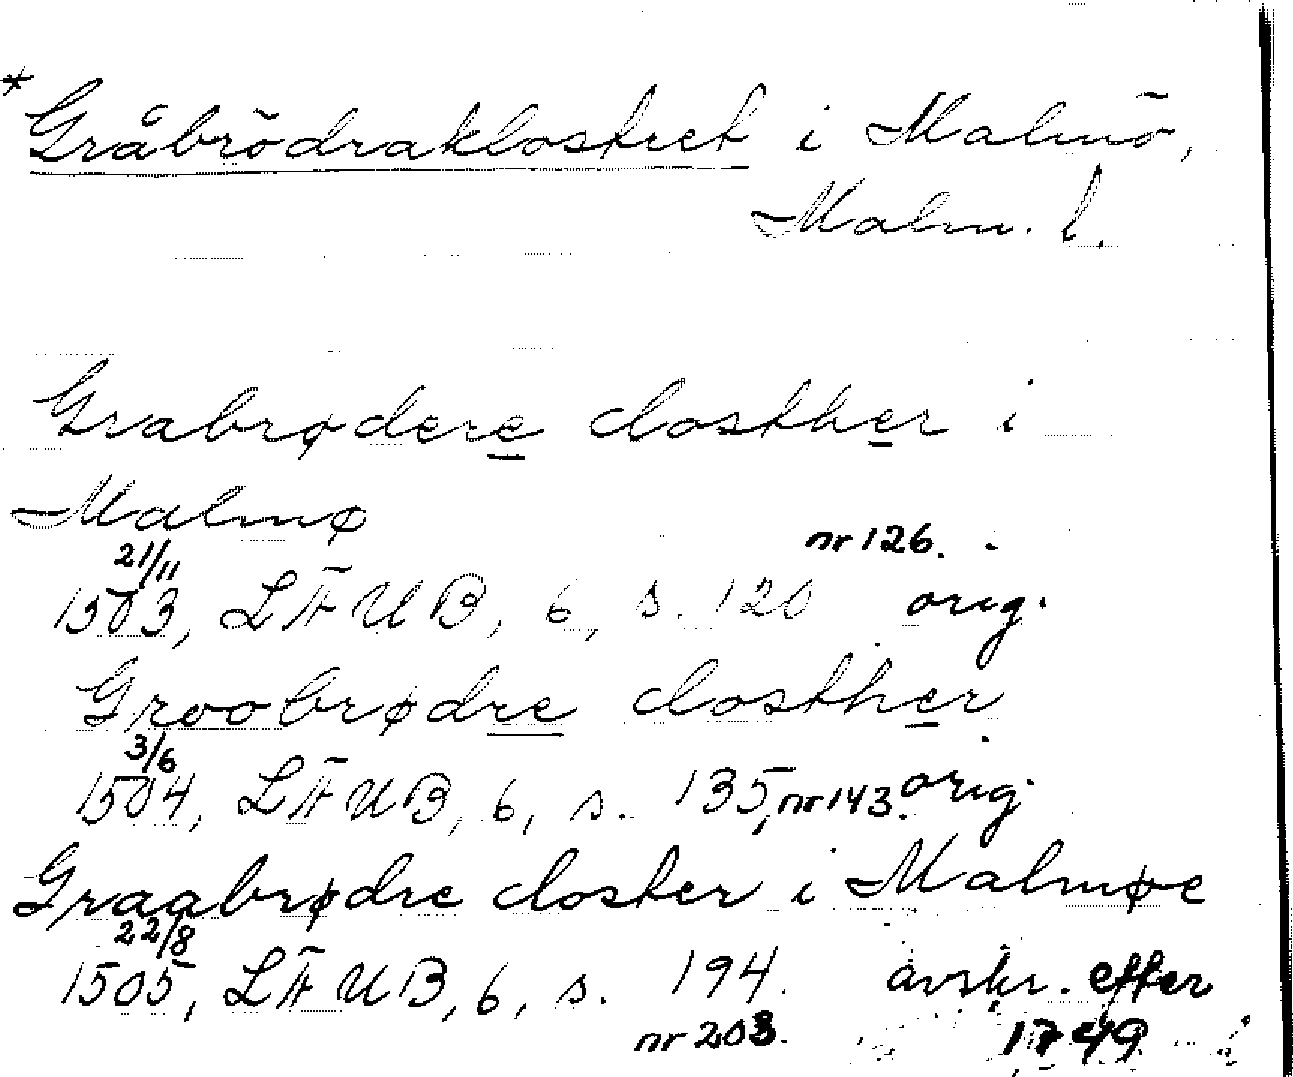 * Gråbrödraklostret i Malmö,
Malm. l.
Grabrødere closther i
Malmø
nr 126.
21/11
1503, LÄUB, 6, s. 120 orig.
Groobrødre closther
3/6
1504, LÄUB, 6, s. 135, nr 143. orig.
Graabrødre closter i Malmøe
22/8
1505, LÄUB, 6, s. 194. avskr. efter
nr 203. 1749